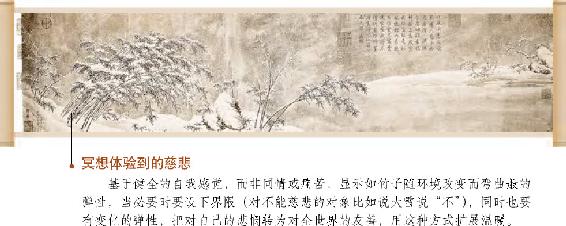 冥想体验到的慈悲
基于健全的自我感觉,而非同情或痛苦。显示如竹子随环境改变而弯曲般的
弹性。当必要时要设下界限(对不能慈悲的对象比如说大声说“不”),同时也要
有变化的弹性,把对自己的悲悯转为对全世界的友善,用这种方式扩展温暖。